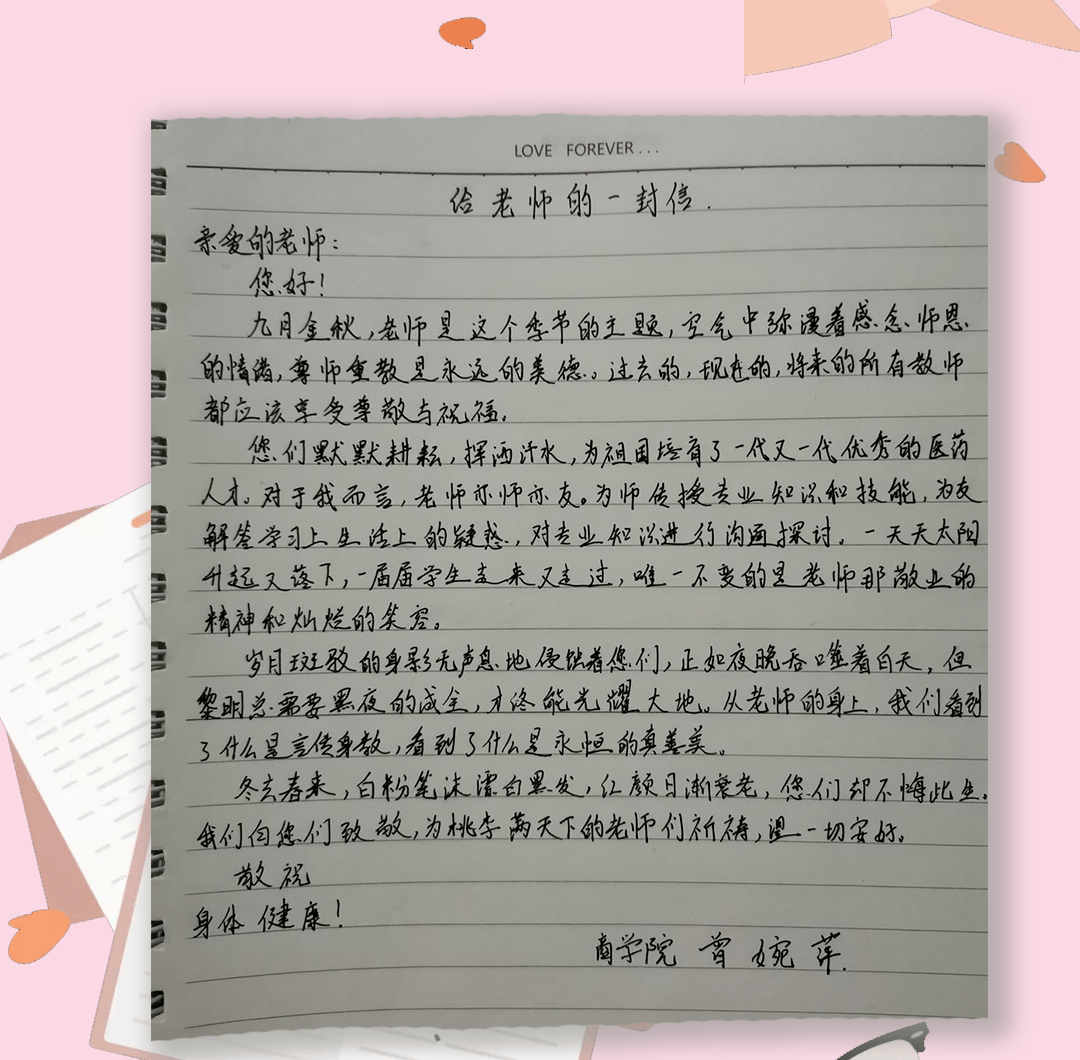 LOVE FOREVER...
给老师的一封信.
亲爱的老师:
您好!
九月金秋,老师是这个季节的主题,空气中弥漫着感念师恩
的情谱,尊师重教是永远的美德。过去的,现在的,将来的所有教师
都应该享受尊敬与祝福。
您们默默耕耘,挥洒汗水,为祖国培育了一代又一代优秀的医药
人才。对于我而言,老师亦师亦友。为师传授专业知识和技能,为友
解答学习上生活上的疑惑,对专业知识进行沟通探讨。一天天太阳
升起又落下,一届届学生走来又走过,唯一不变的是老师那敬业的
精神和灿烂的笑容。
岁月斑驳的身影无声息地侵蚀着您们,正如夜晚吞噬着白天,但
黎明总需要黑夜的成全,才终能光耀大地。从老师的身上,我们看到
了什么是言传身教,看到了什么是永恒的真善美。
冬去春来,白粉笔沫漂白黑发,红颜日渐衰老,您们却不悔此生。
我们向您们致敬,为桃李满天下的老师们祈祷,愿一切安好。
敬祝
身体健康!
商学院 曾婉萍.